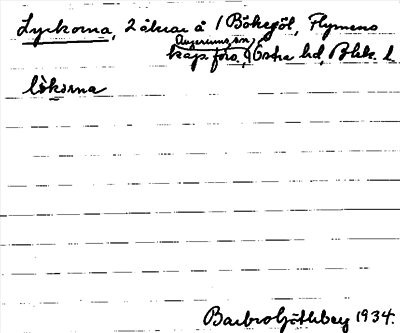 Lyckorna, 2 åkrar å 1 Bökegöl, Flymens
Augerums sn,
kap. förs., Östra hd, Blek. l.
lökorna
Barbro Götheby 1934.